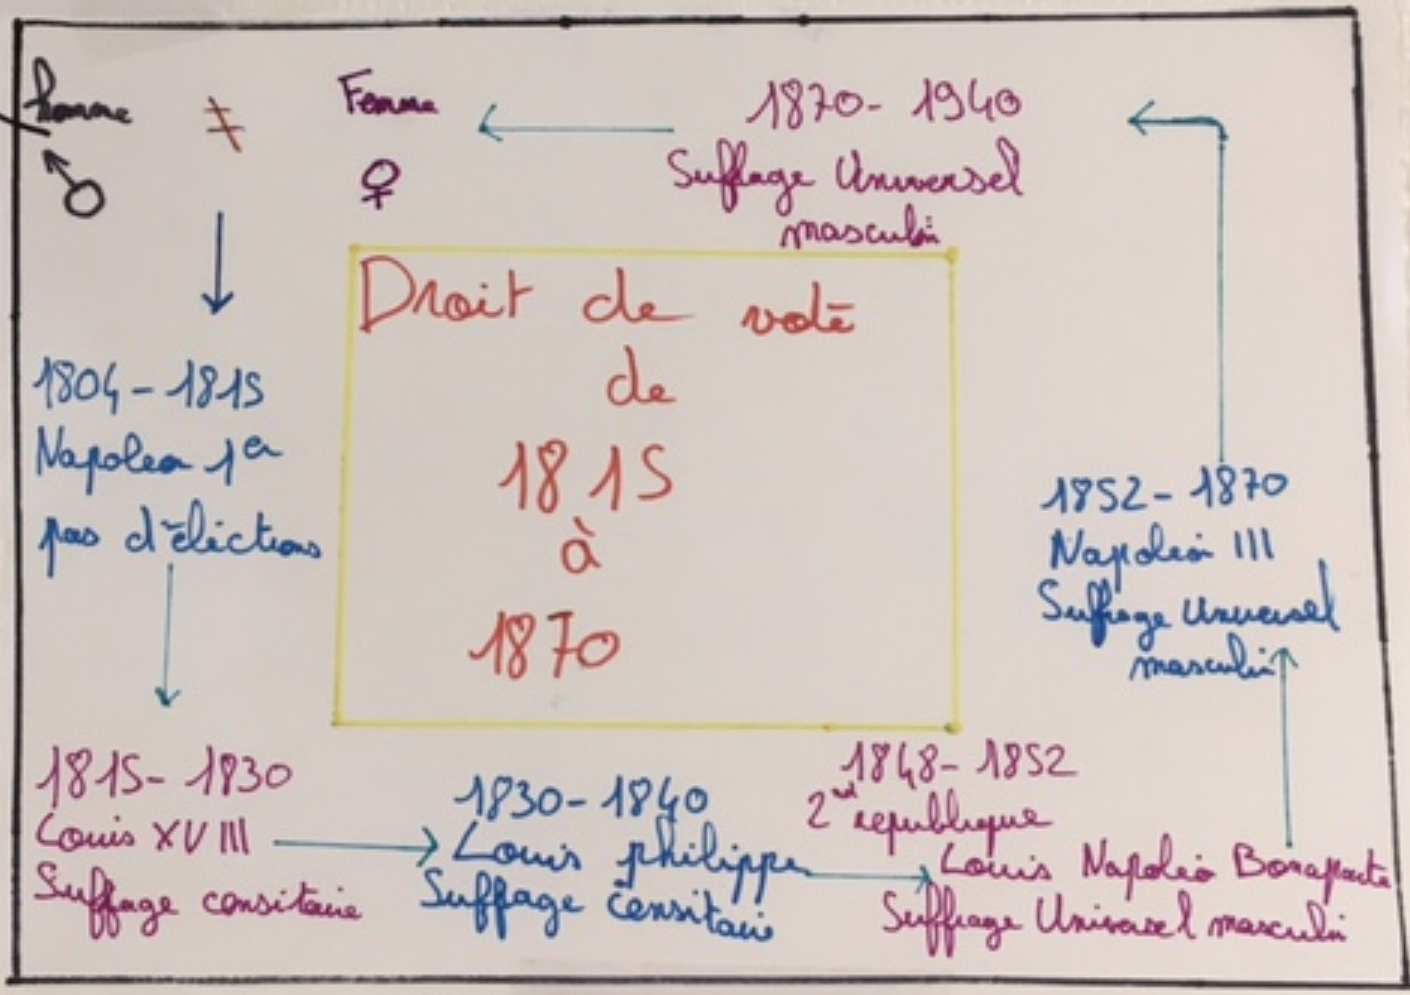 homme ≠ Femme
♂ ♀
1870 - 1940
Suffrage Universel
masculin
Droit de vote
de
1815
à
1870
1804 - 1815
Napoleon 1er
pas d'élections
1815 - 1830
Louis XVIII
Suffrage censitaire
1830 - 1840
Louis philippe
Suffrage censitaire
1848 - 1852
2nd republique
Louis Napoléon Bonaparte
Suffrage Universel masculin
1852 - 1870
Napoléon III
Suffrage Universel
masculin